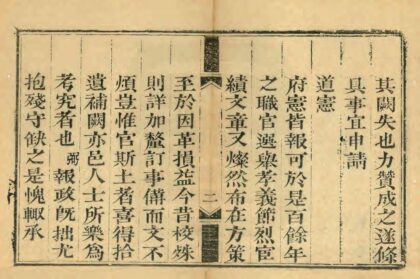 其闕失也力贊成之遂條
具事宜申請
道憲
府憲皆報可於是百餘年
之職官選舉孝義節烈宦
績文章又燦然布在方策
二
至於因革損益今昔校殊
則詳加釐訂事備而文不
煩豈惟官斯土者喜得拾
遺補闕亦邑人士所樂為
考究者也弼報政旣拙尤
抱殘守缺之是愧輒承